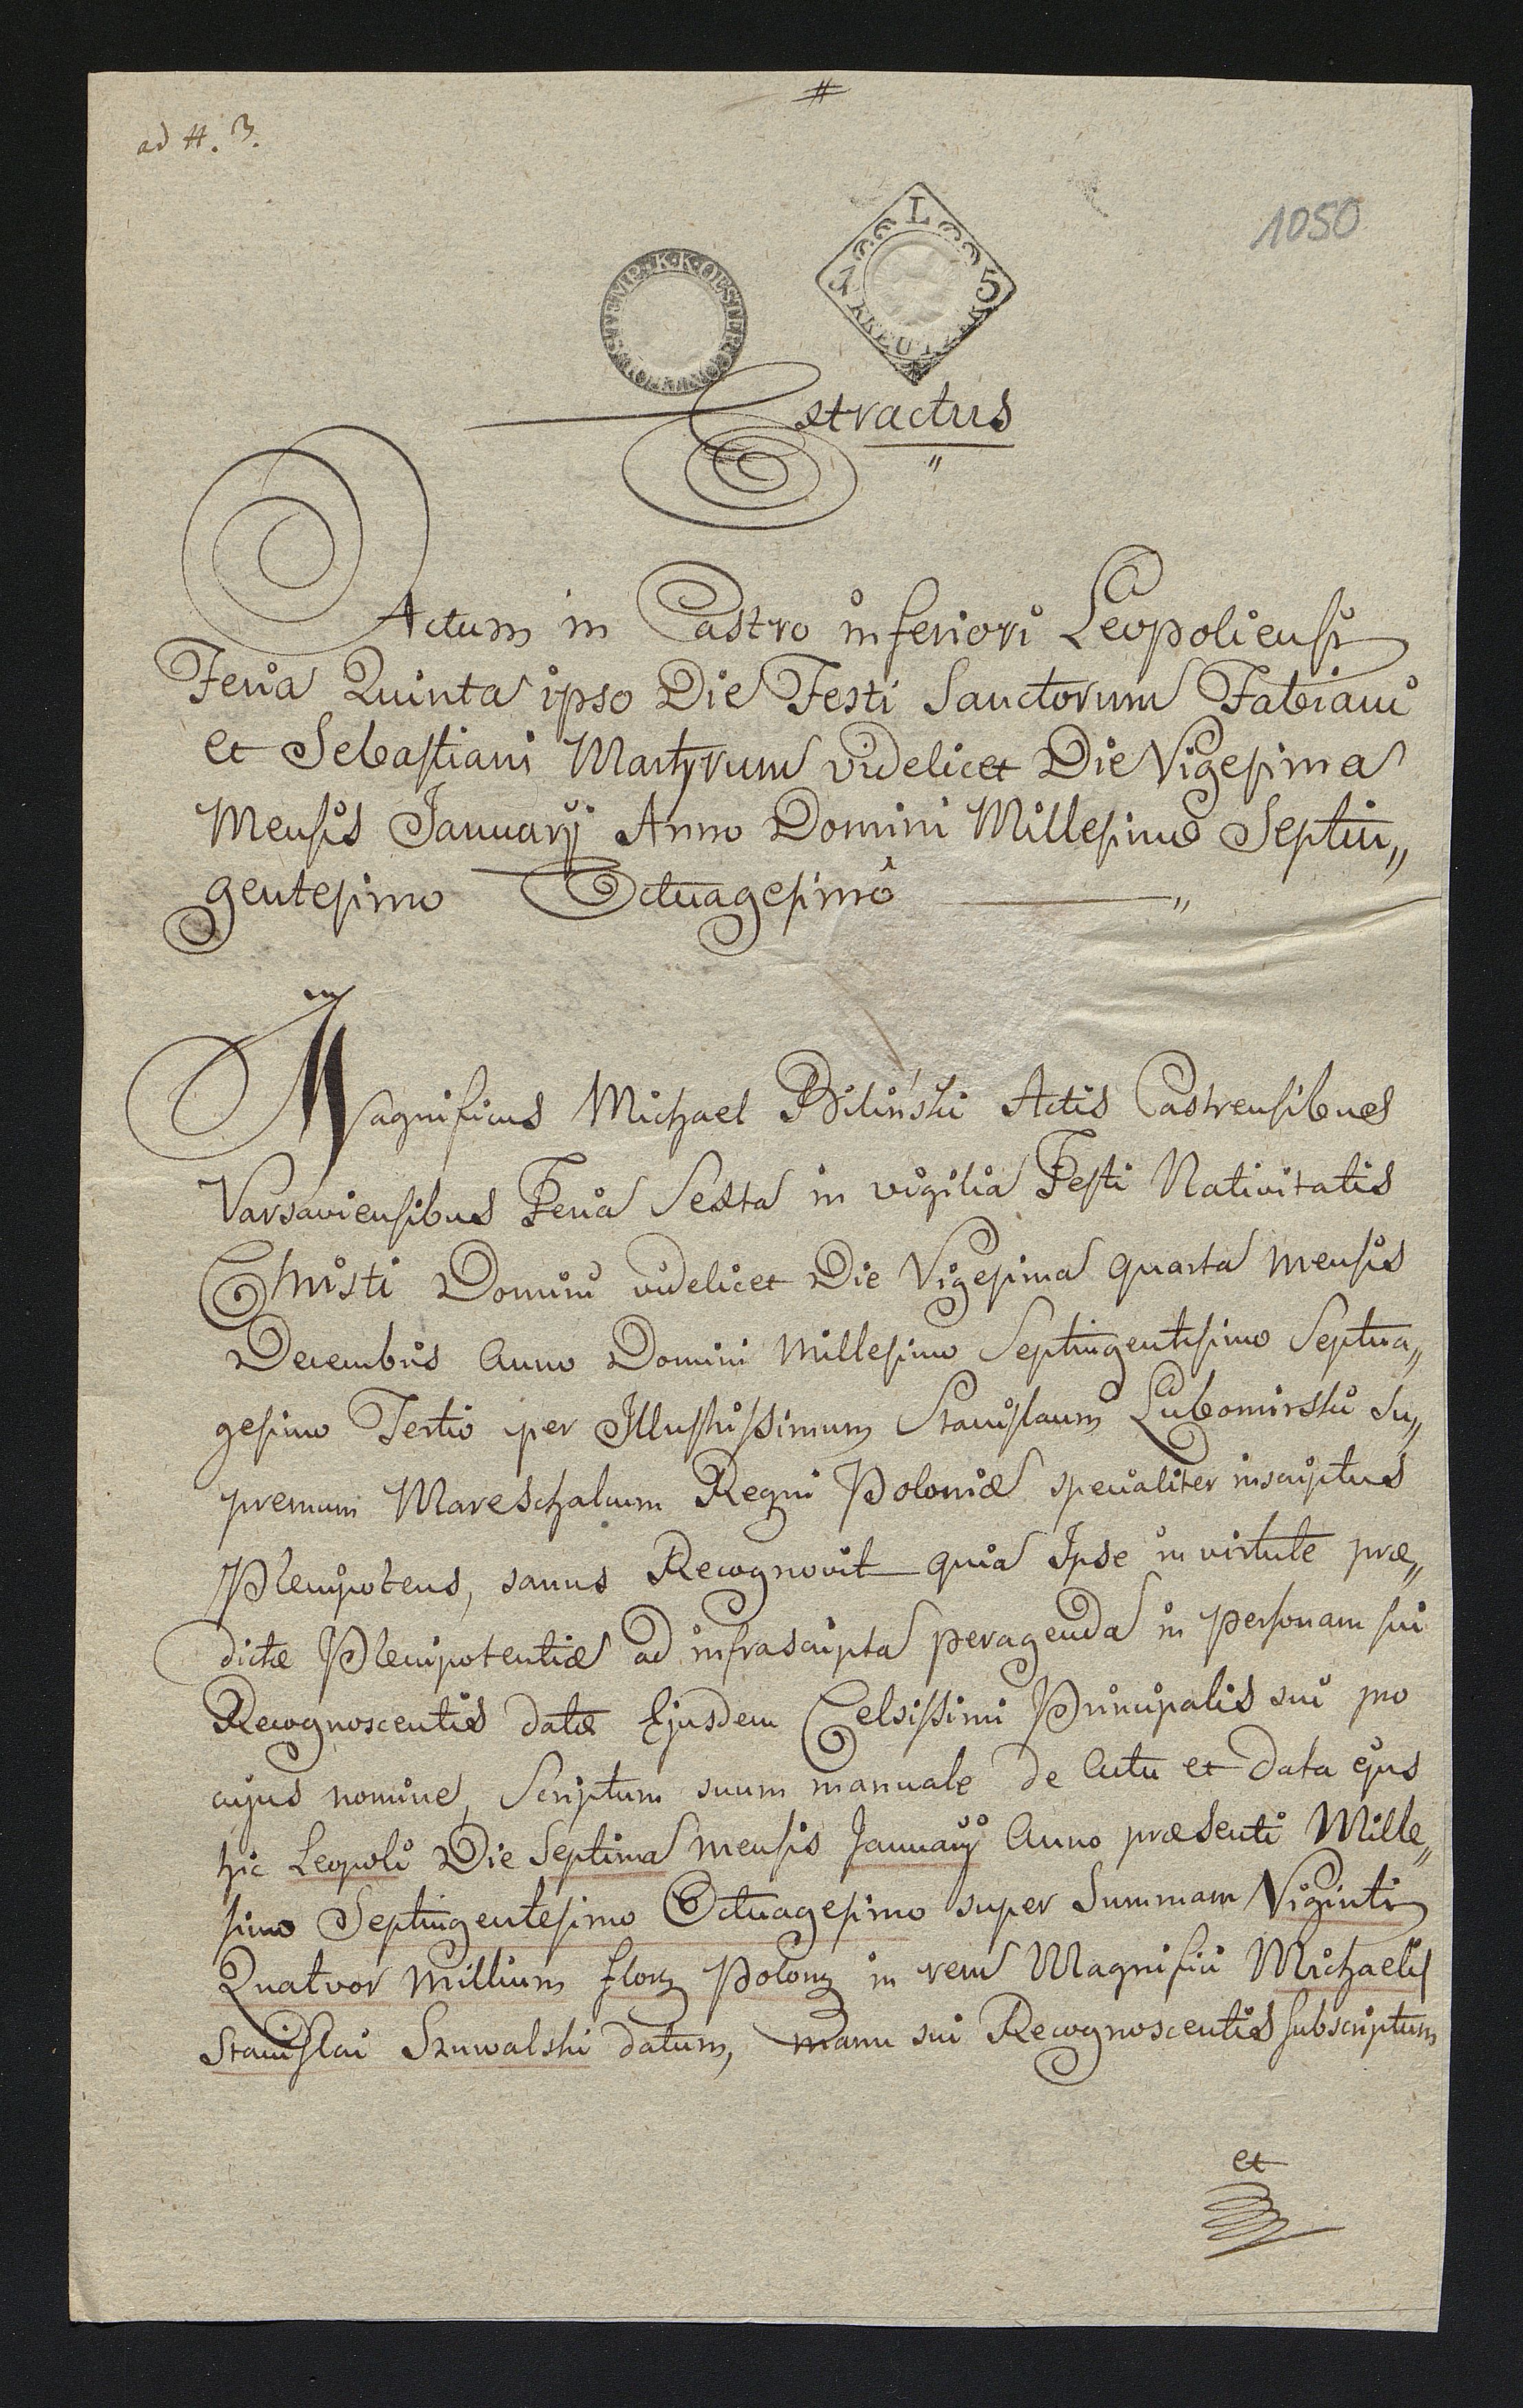 #
ad #. 3.
1050
L
15
KREUTZER
Extractus
"
Actum in Castro inferiori Leopoliensi
Feria Quinta ipso Die Festi Sanctorum Fabiani
et Sebastiani Martyrum videlicet Die Vigesima
Mensis Januarij Anno Domini Millesimo Septin„
gentesimo Octuagesimo „
Magnificus Michael Biliński Actis Castrensibus
Varsaviensibus Feria Sexta in vigilia Festi Nativitatis
Christi Domini videlicet Die Vigesima quarta mensis
Decembris Anno Domini Millesimo Septingentesimo Septua„
gesimo Tertio per Illustrissimum Stanislaum Lubomirski Su„
premum Mareschalcum Regni Poloniæ specialiter inscriptus
Plenipotens, sanus Recognovit quia Ipse in virtute præ„
dictæ Plenipotentiæ ad infrascripta peragenda in personam sui
Recognoscentis datæ Ejusdem Celsissimi Principalis sui pro
cujus nomine, Scriptum suum manuale de Actu et data ejus
hic Leopoli Die Septima mensis Januarij Anno præsenti Mille„
simo Septingentesimo Octuagesimo super Summam Viginti
Quatvor Millium flor. Polon. in rem Magnifici Michaelis
Stanislai Szuwalski datum, manu sui Recognoscentis subscriptum
et